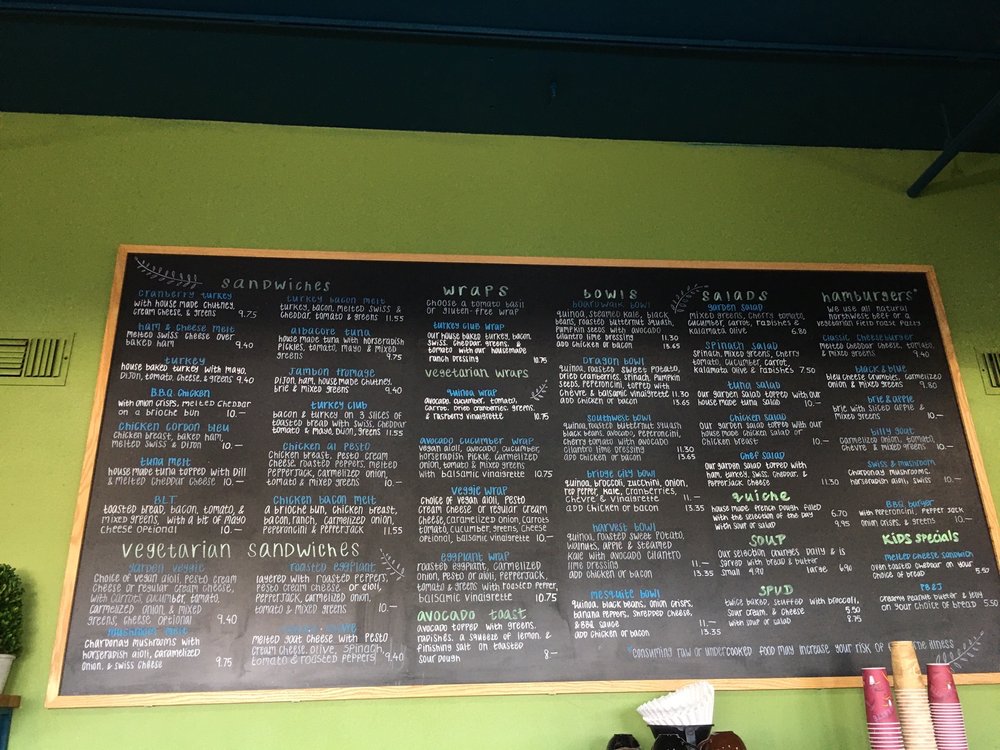 sandwiches
cranberry turkey
with house made chutney,
cream cheese, & greens 9.75
ham & cheese melt
melted swiss cheese over
baked ham 9.40
turkey
house baked turkey with mayo,
Dijon, tomato, cheese, & greens 9.40
B.B.Q Chicken
with onion crisps, melted cheddar
on a brioche bun 10.—
chicken cordon bleu
chicken breast, baked ham,
melted swiss & Dijon 10.—
tuna melt
house made tuna topped with Dill
& melted cheddar cheese 10.—
BLT
toasted bread, bacon, tomato, &
mixed greens, with a bit of mayo
cheese optional 10.—
turkey bacon melt
turkey, bacon, melted swiss &
cheddar tomato & greens 11.55
albacore tuna
house made tuna with horseradish
pickles, tomato, mayo & mixed
greens 9.75
Jambon fromage
Dijon, ham, house made chutney,
brie & mixed greens 9.40
turkey club
bacon & turkey on 3 slices of
toasted bread with swiss, cheddar
tomato & mayo, Dijon, greens 11.55
Chicken al pesto
chicken breast, pesto cream
cheese, roasted peppers, melted
pepperjack, carmelized onion,
tomato & mixed greens 10.—
chicken bacon melt
a brioche bun, chicken breast,
bacon, ranch, carmelized onion,
peperoncini & pepperjack 11.55
vegetarian sandwiches
garden veggie
choice of vegan aioli, pesto cream
cheese or regular cream cheese,
with carrots, cucumber, tomato,
carmelized onion, & mixed
greens, cheese optional 9.40
mushroom melt
chardonay mushrooms with
horseradish aioli, caramelized
onion, & swiss cheese 9.75
roasted eggplant
layered with roasted peppers,
pesto cream cheese, or aioli,
pepperjack, carmelized onion,
tomato & mixed greens 10.—
melted goat cheese with pesto
cream cheese, olive, spinach,
tomato & roasted peppers 9.40
wraps
choose a tomato basil
or gluten-free wrap
turkey club wrap
our house baked turkey, bacon,
swiss, cheddar, greens, &
tomato with our housemade
ranch dressing 10.75
vegetarian wraps
quinoa wrap
avocado, cucumber, tomato,
carrot, dried cranberries, greens,
& raspberry vinaigrette 10.75
avocado cucumber wrap
vegan aioli, avocado, cucumber,
horseradish pickle, carmelized
onion, tomato & mixed greens
with balsamic vinaigrette 10.75
veggie wrap
choice of vegan aioli, pesto
cream cheese or regular cream
cheese, caramelized onion, carrots
tomato, cucumber, greens, cheese
optional, balsamic vinaigrette 10.—
eggplant wrap
roasted eggplant, carmelized
onion, pesto or aioli, pepperjack
tomato & greens with roasted pepper,
balsamic vinaigrette 10.75
avocado toast
avocado topped with greens,
radishes, a squeeze of lemon, &
finishing salt on toasted
sour dough 8.—
bowls
boardwalk bowl
quinoa, steamed kale, black
beans, roasted butternut squash,
pumpkin seeds with avocado
cilantro lime dressing 11.30
add chicken or bacon 13.65
Dragon bowl
quinoa, roasted sweet potato,
dried cranberries, spinach, pumpkin
seeds, peperoncini, topped with
chevre & balsamic vinaigrette 11.30
add chicken or bacon 13.65
southwest bowl
quinoa, roasted butternut squash
black beans, avocado, peperoncini,
cherry tomato with avocado
cilantro lime dressing 11.30
add chicken or bacon
bridge city bowl
quinoa, broccoli, zucchini, onion,
red pepper, kale, cranberries,
chevre & vinaigrette 11.—
add chicken or bacon 13.35
harvest bowl
quinoa, roasted sweet potato,
walnuts, apple & steamed
kale with avocado cilantro
lime dressing 11.—
add chicken or bacon 13.35
mesquite bowl
quinoa, black beans, onion crisps,
banana peppers, shredded cheese,
& BBQ sauce 11.—
add chicken or bacon 13.35
salads
garden salad
mixed greens, cherry tomato,
cucumber, carrot, radishes &
kalamata olive 6.80
spinach salad
spinach, mixed greens, cherry
tomato, cucumber, carrot,
kalamata olive & radishes 7.50
tuna salad
our garden salad topped with our
house made tuna salad 10.—
chicken salad
our garden salad topped with our
house made chicken salad or
chicken breast 10.—
chef salad
our garden salad topped with
ham, turkey, swiss, cheddar, &
pepperjack cheese 11.30
quiche
house made French dough filled
with the selection of the day 6.70
with soup or salad 9.95
soup
our selection changes daily & is
served with bread & butter
small 4.90 large 6.90
spud
twice baked, stuffed with broccoli,
sour cream, & cheese 5.50
with soup or salad 8.75
hamburgers*
We use all natural
northwest beef or a
vegetarian field roast patty
classic cheeseburger
melted cheddar cheese, tomato,
& mixed greens 9.—
black & blue
bleu cheese crumbles, carmelized
onion & mixed greens 9.80
brie & apple
brie with sliced apple &
mixed greens 10.—
billy goat
carmelized onion, tomato,
chèvre & mixed greens 10.—
swiss & mushroom
chardonay mushrooms,
horseradish aioli, swiss 10.—
BBQ burger
with peperoncini, pepper jack
onion crisps, & greens 10.—
Kids specials
melted cheese sandwich
oven toasted cheddar on your
choice of bread 5.50
PB&J
creamy peanut butter & jelly
on your choice of bread 5.50
*consuming raw or undercooked food may increase your risk of illness